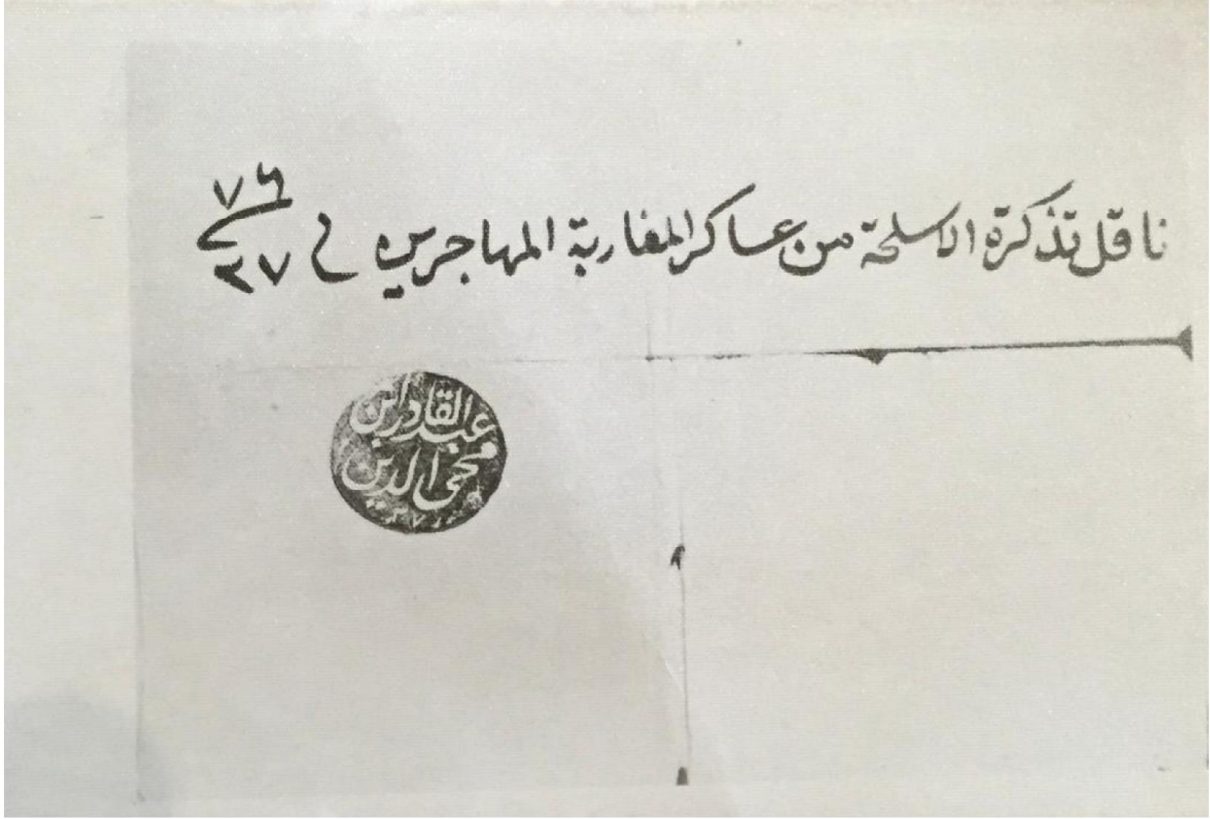 ناقل تذكرة الاسلحة من عساكر المغاربة المهاجرين في ٢٧
٧٦
عبد القادر ابن
محي الدين